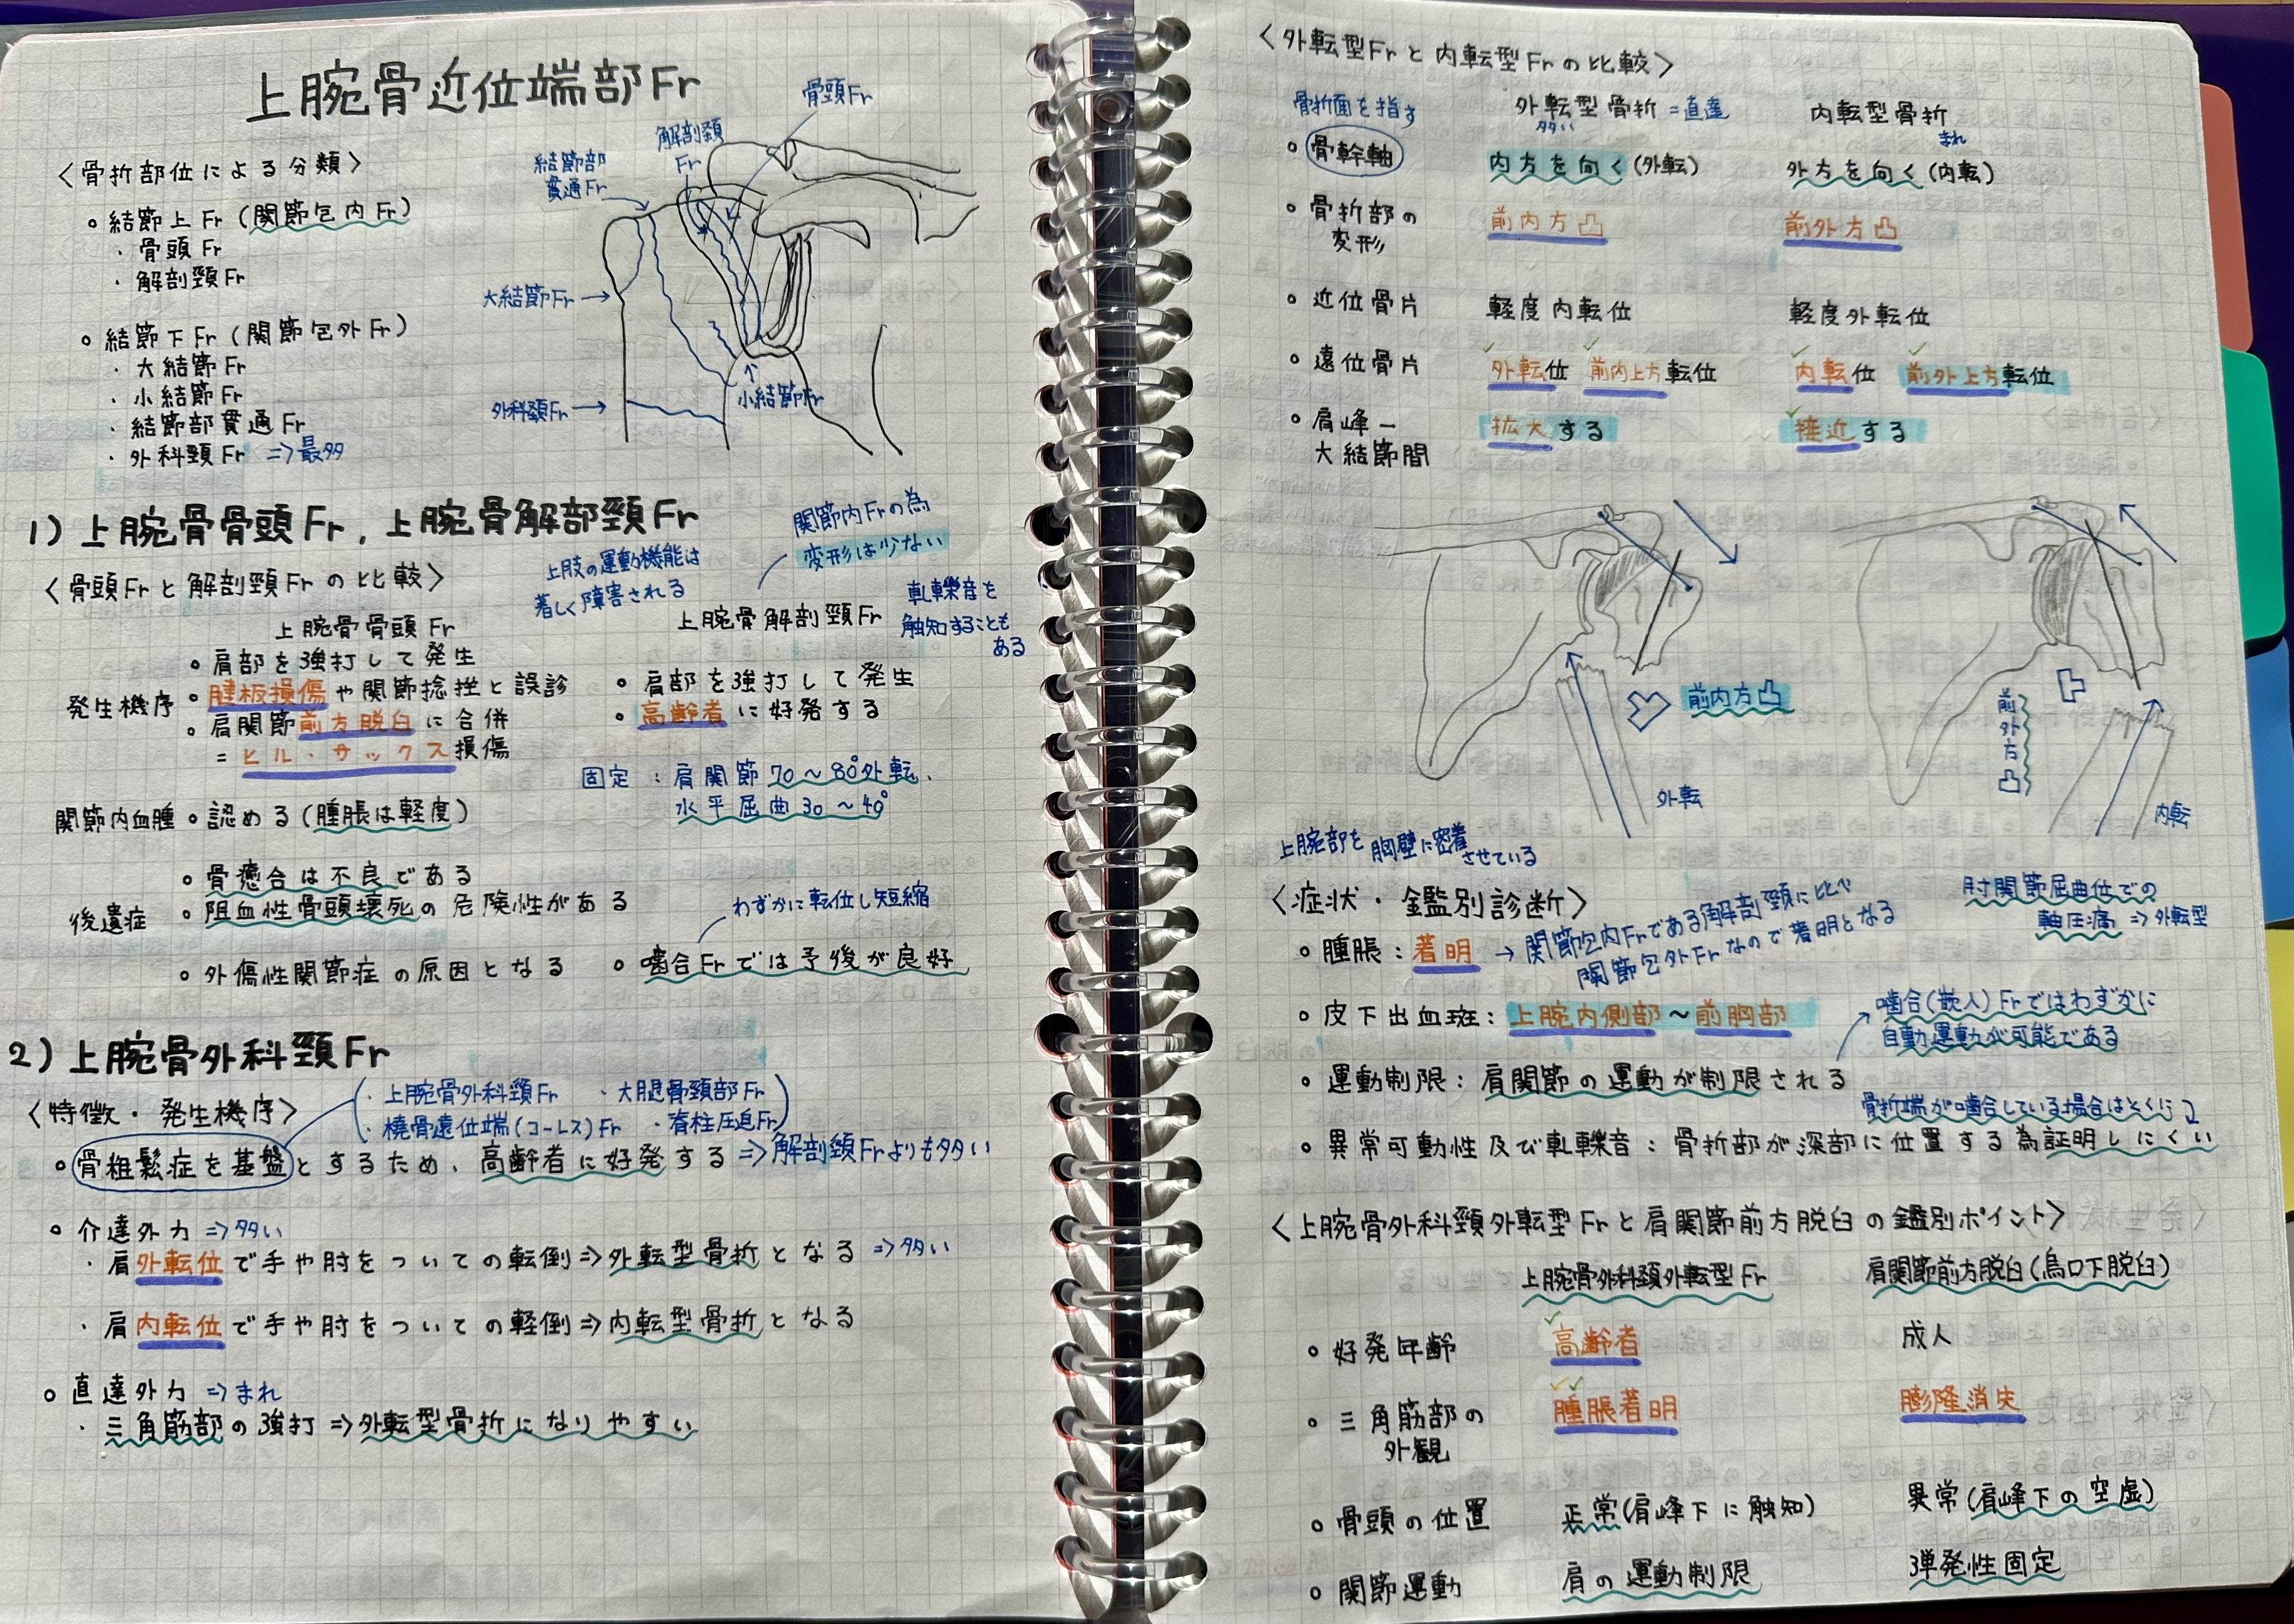 上腕骨近位端部Fr
〈骨折部位による分類〉
。結節上Fr (関節包内Fr)
・骨頭Fr
・解剖頸Fr
。結節下Fr (関節包外Fr)
・大結節Fr
・小結節Fr
・結節部貫通Fr
・外科頸Fr ⇒最多
骨頭Fr
解剖頸
Fr
結節部
貫通Fr
大結節Fr→
外科頸Fr→
↑
小結節Fr
1) 上腕骨骨頭Fr, 上腕骨解部頸Fr
〈骨頭Frと解剖頸Frの比較〉
上肢の運動機能は
著しく障害される
関節内Frの為
変形は少ない
軋轢音を
触知することも
ある
上腕骨骨頭Fr
上腕骨解剖頸Fr
発生機序
。肩部を強打して発生
。腱板損傷や関節捻挫と誤診
。肩関節前方脱臼に合併
=ヒル・サックス損傷
。肩部を強打して発生
。高齢者に好発する
固定:肩関節70~80°外転、
水平屈曲30~40°
関節内血腫 。認める(腫脹は軽度)
後遺症
。骨癒合は不良である
。阻血性骨頭壊死の危険性がある
。外傷性関節症の原因となる
わずかに転位し短縮
。嚙合Frでは予後が良好
2) 上腕骨外科頸Fr
〈特徴・発生機序〉
・上腕骨外科頸Fr ・大腿骨頸部Fr
・橈骨遠位端(コーレス)Fr ・脊柱圧迫Fr
。骨粗鬆症を基盤とするため、高齢者に好発する⇒解剖頸Frよりも多い
。介達外力 ⇒多い
・肩外転位で手や肘をついての転倒⇒外転型骨折となる ⇒多い
・肩内転位で手や肘をついての軽倒⇒内転型骨折となる
。直達外力 ⇒まれ
・三角筋部の強打⇒外転型骨折になりやすい
〈外転型Frと内転型Frの比較〉
骨折面を指す
外転型骨折=直達
多い
内転型骨折
まれ
。骨幹軸 内方を向く(外転) 外方を向く(内転)
。骨折部の
変形
前内方凸 前外方凸
。近位骨片 軽度内転位 軽度外転位
。遠位骨片 外転位 前内上方転位 内転位 前外上方転位
。肩峰ー
大結節間
拡大する 接近する
前内方凸
外転
前外方凸
内転
上腕部を胸壁に密着
させている
〈症状・鑑別診断〉
肘関節屈曲位での
軸圧痛 ⇒外転型
。腫脹:著明 →関節包内Frである解剖頸に比べ
関節包外Frなので著明となる
。皮下出血斑:上腕内側部~前胸部
嚙合(嵌入)Frではわずかに
自動運動が可能である
。運動制限:肩関節の運動が制限される
骨折端が嚙合している場合はとくに
。異常可動性及び軋轢音:骨折部が深部に位置する為証明しにくい
〈上腕骨外科頸外転型Frと肩関節前方脱臼の鑑別ポイント〉
上腕骨外科頸外転型Fr 肩関節前方脱臼(烏口下脱臼)
。好発年齢 高齢者 成人
。三角筋部の
外観
腫脹著明 膨隆消失
。骨頭の位置 正常(肩峰下に触知) 異常(肩峰下の空虚)
。関節運動 肩の運動制限 弾発性固定